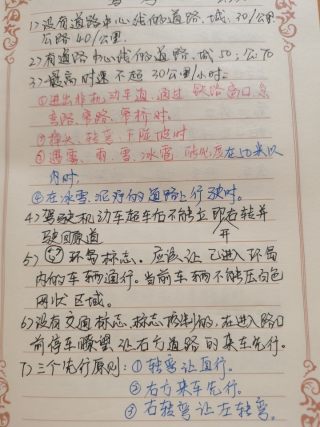 1) 没有道路中心线的道路,城,30/公里
公路40/公里.
2) 有道路中心线的道路,城50;公70
3) 最高时速不超30公里/小时.
①进出非机动车道,通过铁路道口急
弯路,窄路,窄桥时.
②掉头、转弯、下陡坡时
③遇雾、雨、雪、冰雹 能见度在50米以
内时.
④在冰雪、泥泞的道路上行驶时.
4) 驾驶机动车超车后不能立即右转并
驶回原道 并
5) 环岛标志.应该让已进入环岛
内的车辆通行.当前车辆不能压白色
网状区域.
6) 没有交通标志、标志控制的,在进入路口
前停车瞭望,让右方道路的来车先行.
7) 三个先行原则:①转弯让直行.
②右方来车先行.
③右转弯让左转弯.